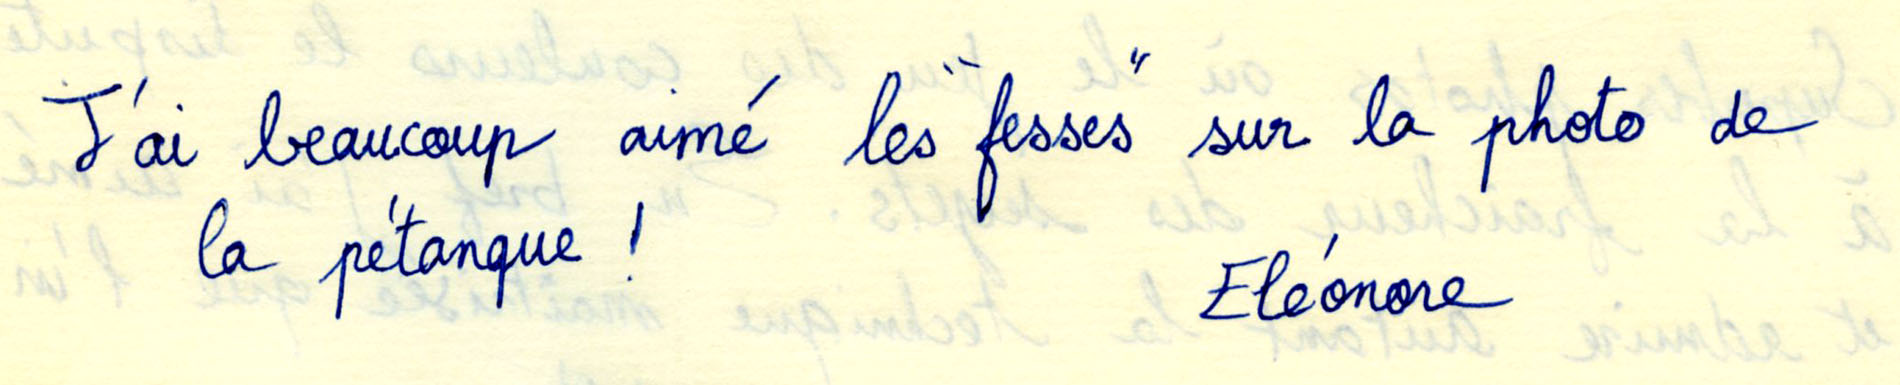 J'ai beaucoup aimé les "fesses" sur la photo de
la pétanque !
Eléonore